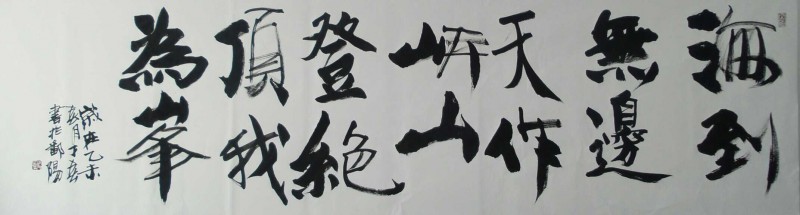 海到
無邊
天作
岸山
登絕
頂我
為峯
歲在乙未
月
書於鄱陽